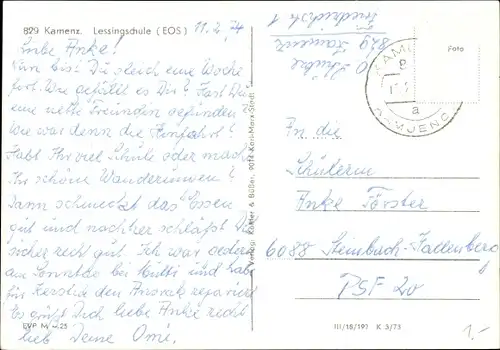 829 Kamenz. Lessingschule (EOS)
11.2.74
Liebe Anke!
Nun bist Du gleich eine Woche
fort. Wie gefällt es Dir? Hast Du
eine nette Freundin gefunden
Wie war denn die Hinfahrt?
Habt Ihr viel Schule oder macht
Ihr schöne Wanderungen?
Dann schmeckt das Essen
gut und nachher schläfst Du
sicher recht gut. Ich war gestern
am Sonntag bei Mutti und habe
für Kerstin den Anorak repariert
Es grüßt Dich, liebe Anke recht
lieb Deine Omi.
EVP M -.25
Verlag Köhler & Büßer, 9014 Karl-Marx-Stadt
829 Kamenz
Friedrichstr. 1
Foto
a
An die
Schülerin
Anke Förster
6088 Steinbach-Hallenberg
PSF 20
III/18/191 K 3/73
1,-